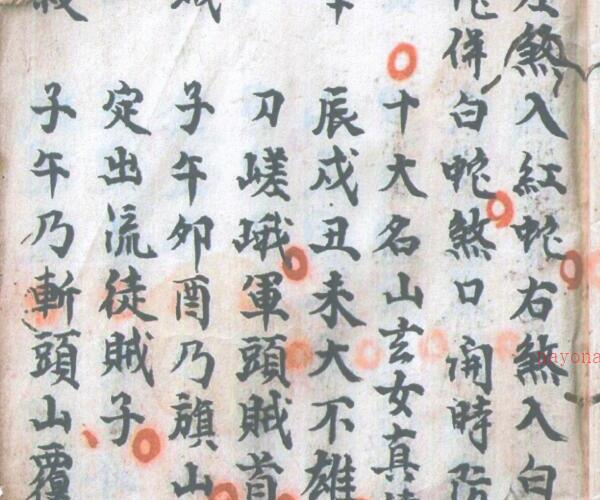 煞入紅蛇右煞入白
併白蛇煞口開時
十大名山玄女真
辰戌丑未大不雄
刀嵯峨軍頭賊首
子午卯酉乃旗山
定出流徒賊子
子午乃斬頭山覆
nayona